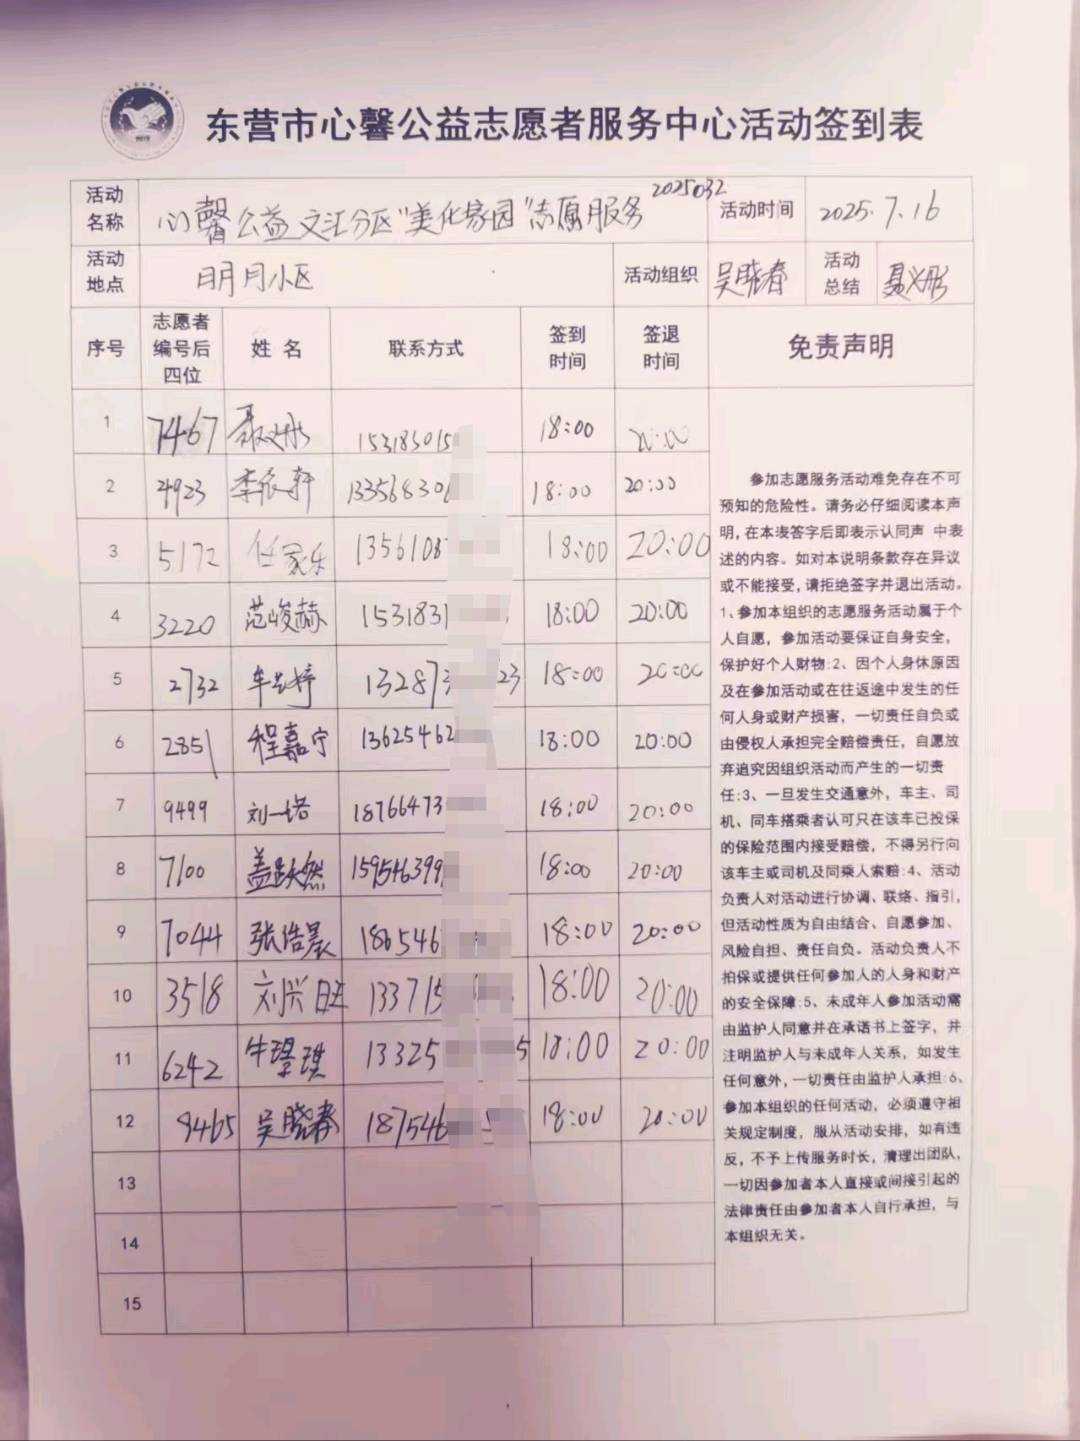 东营市心馨公益志愿者服务中心活动签到表
活动名称 心馨公益文汇分区"美化家园"志愿服务 2025032 活动时间 2025.7.16
活动地点 明月小区 活动组织 吴晓春 活动总结 聂义彤
序号 志愿者编号后四位 姓 名 联系方式 签到时间 签退时间 免责声明
1 7467 聂义彤 153183015 18:00 20:00
2 4923 李依轩 13356830 18:00 20:00
3 5172 任家乐 1356108 18:00 20:00
4 3220 范峻赫 153183 18:00 20:00
5 2732 车 婷 13287 23 18:00 20:00
6 2851 程嘉宁 13625462 18:00 20:00
7 9499 刘一诺 18766473 18:00 20:00
8 7100 盖 然 159546399 18:00 20:00
9 7044 张浩晨 186546 18:00 20:00
10 3518 刘兴旺 133715 18:00 20:00
11 6242 牛璟琪 13325 5 18:00 20:00
12 9465 吴晓春 187546 5 18:00 20:00
13
14
15
参加志愿服务活动难免存在不可
预知的危险性。请务必仔细阅读本声
明,在本表签字后即表示认同声 中表
述的内容。如对本说明条款存在异议
或不能接受,请拒绝签字并退出活动。
1、参加本组织的志愿服务活动属于个
人自愿,参加活动要保证自身安全,
保护好个人财物:2、因个人身休原因
及在参加活动或在往返途中发生的任
何人身或财产损害,一切责任自负或
由侵权人承担完全赔偿责任,自愿放
弃追究因组织活动而产生的一切责
任:3、一旦发生交通意外,车主、司
机、同车搭乘者认可只在该车已投保
的保险范围内接受赔偿,不得另行向
该车主或司机及同乘人索赔:4、活动
负责人对活动进行协调、联络、指引,
但活动性质为自由结合、自愿参加、
风险自担、责任自负。活动负责人不
拍保或提供任何参加人的人身和财产
的安全保障:5、未成年人参加活动需
由监护人同意并在承诺书上签字,并
注明监护人与未成年人关系,如发生
任何意外,一切责任由监护人承担:6、
参加本组织的任何活动,必须遵守相
关规定制度,服从活动安排,如有违
反,不予上传服务时长,清理出团队,
一切因参加者本人直接或间接引起的
法律责任由参加者本人自行承担,与
本组织无关。